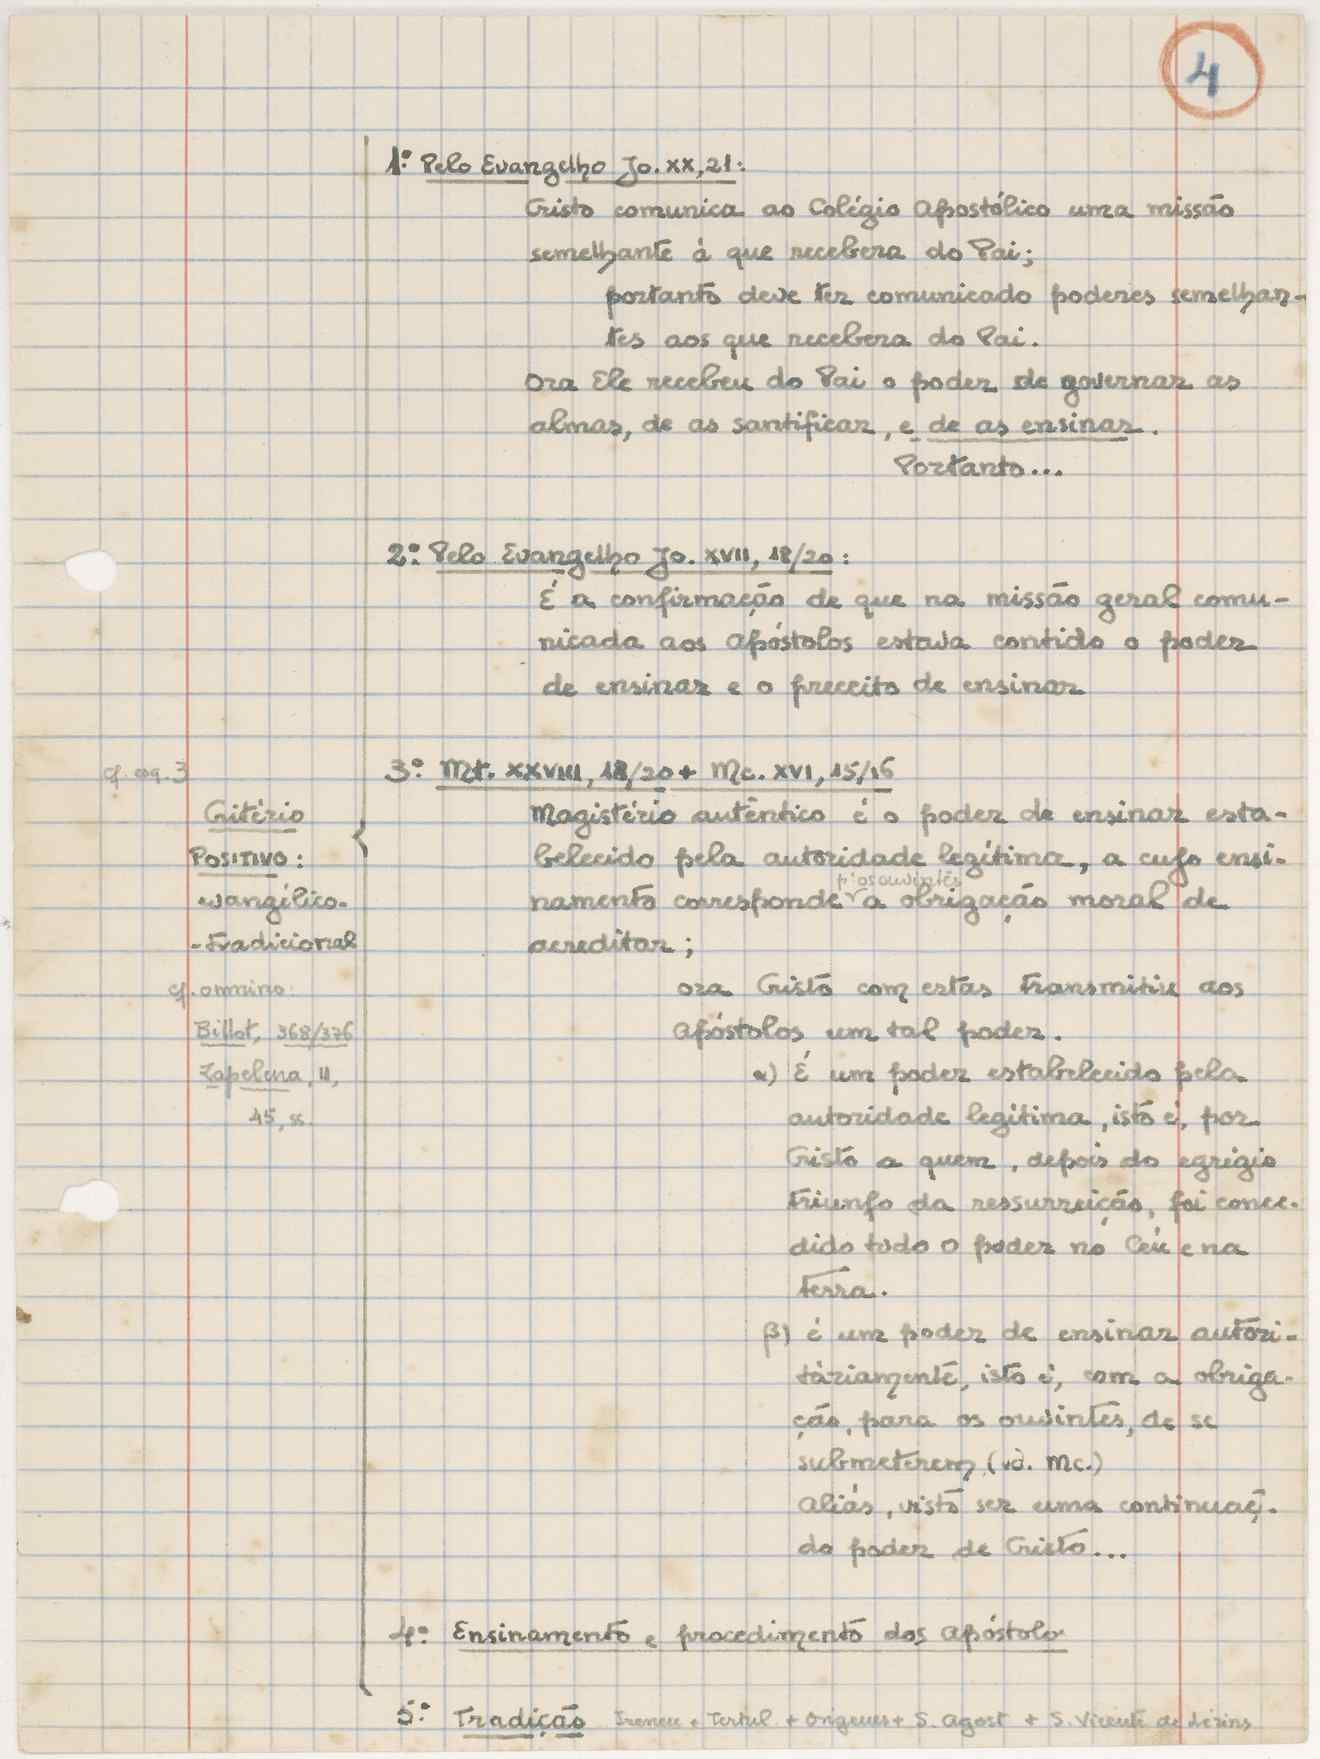 4
1º Pelo Evangelho Jo. XX, 21:
Cristo comunica ao Colégio Apostólico uma missão
semelhante à que recebera do Pai;
portanto deve ter comunicado poderes semelhan-
tes aos que recebera do Pai.
Ora Ele recebeu do Pai o poder de governar as
almas, de as santificar, e de as ensinar.
Portanto...
2º Pelo Evangelho Jo. XVII, 18/20:
É a confirmação de que na missão geral comu-
nicada aos Apóstolos estava contido o poder
de ensinar e o preceito de ensinar
cf. pg. 3
3º Mt. XXVIII, 18/20 + Mc. XVI, 15/16
Critério
POSITIVO:
evangélico-
-tradicional
cf. omnino:
Billot, 368/376
Zapelena, II,
45, ss
Magistério autêntico é o poder de ensinar esta-
belecido pela autoridade legítima, a cujo ensi-
p'os ouvintes
namento corresponde a obrigação moral de
acreditar;
ora Cristo com estas transmitiu aos
Apóstolos um tal poder.
α) É um poder estabelecido pela
autoridade legítima, isto é, por
Cristo a quem, depois do egrégio
triunfo da ressurreição, foi conce-
dido todo o poder no Céu e na
terra.
β) é um poder de ensinar autori-
tàriamente, isto é, com a obriga-
ção, para os ouvintes, de se
submeterem (vd. Mc.)
Aliás, visto ser uma continuaç.
do poder de Cristo...
4º Ensinamento e procedimento dos Apóstolos
5º Tradição Ireneu + Tertul + Origenes + S. Agost + S. Vicente de Lérins